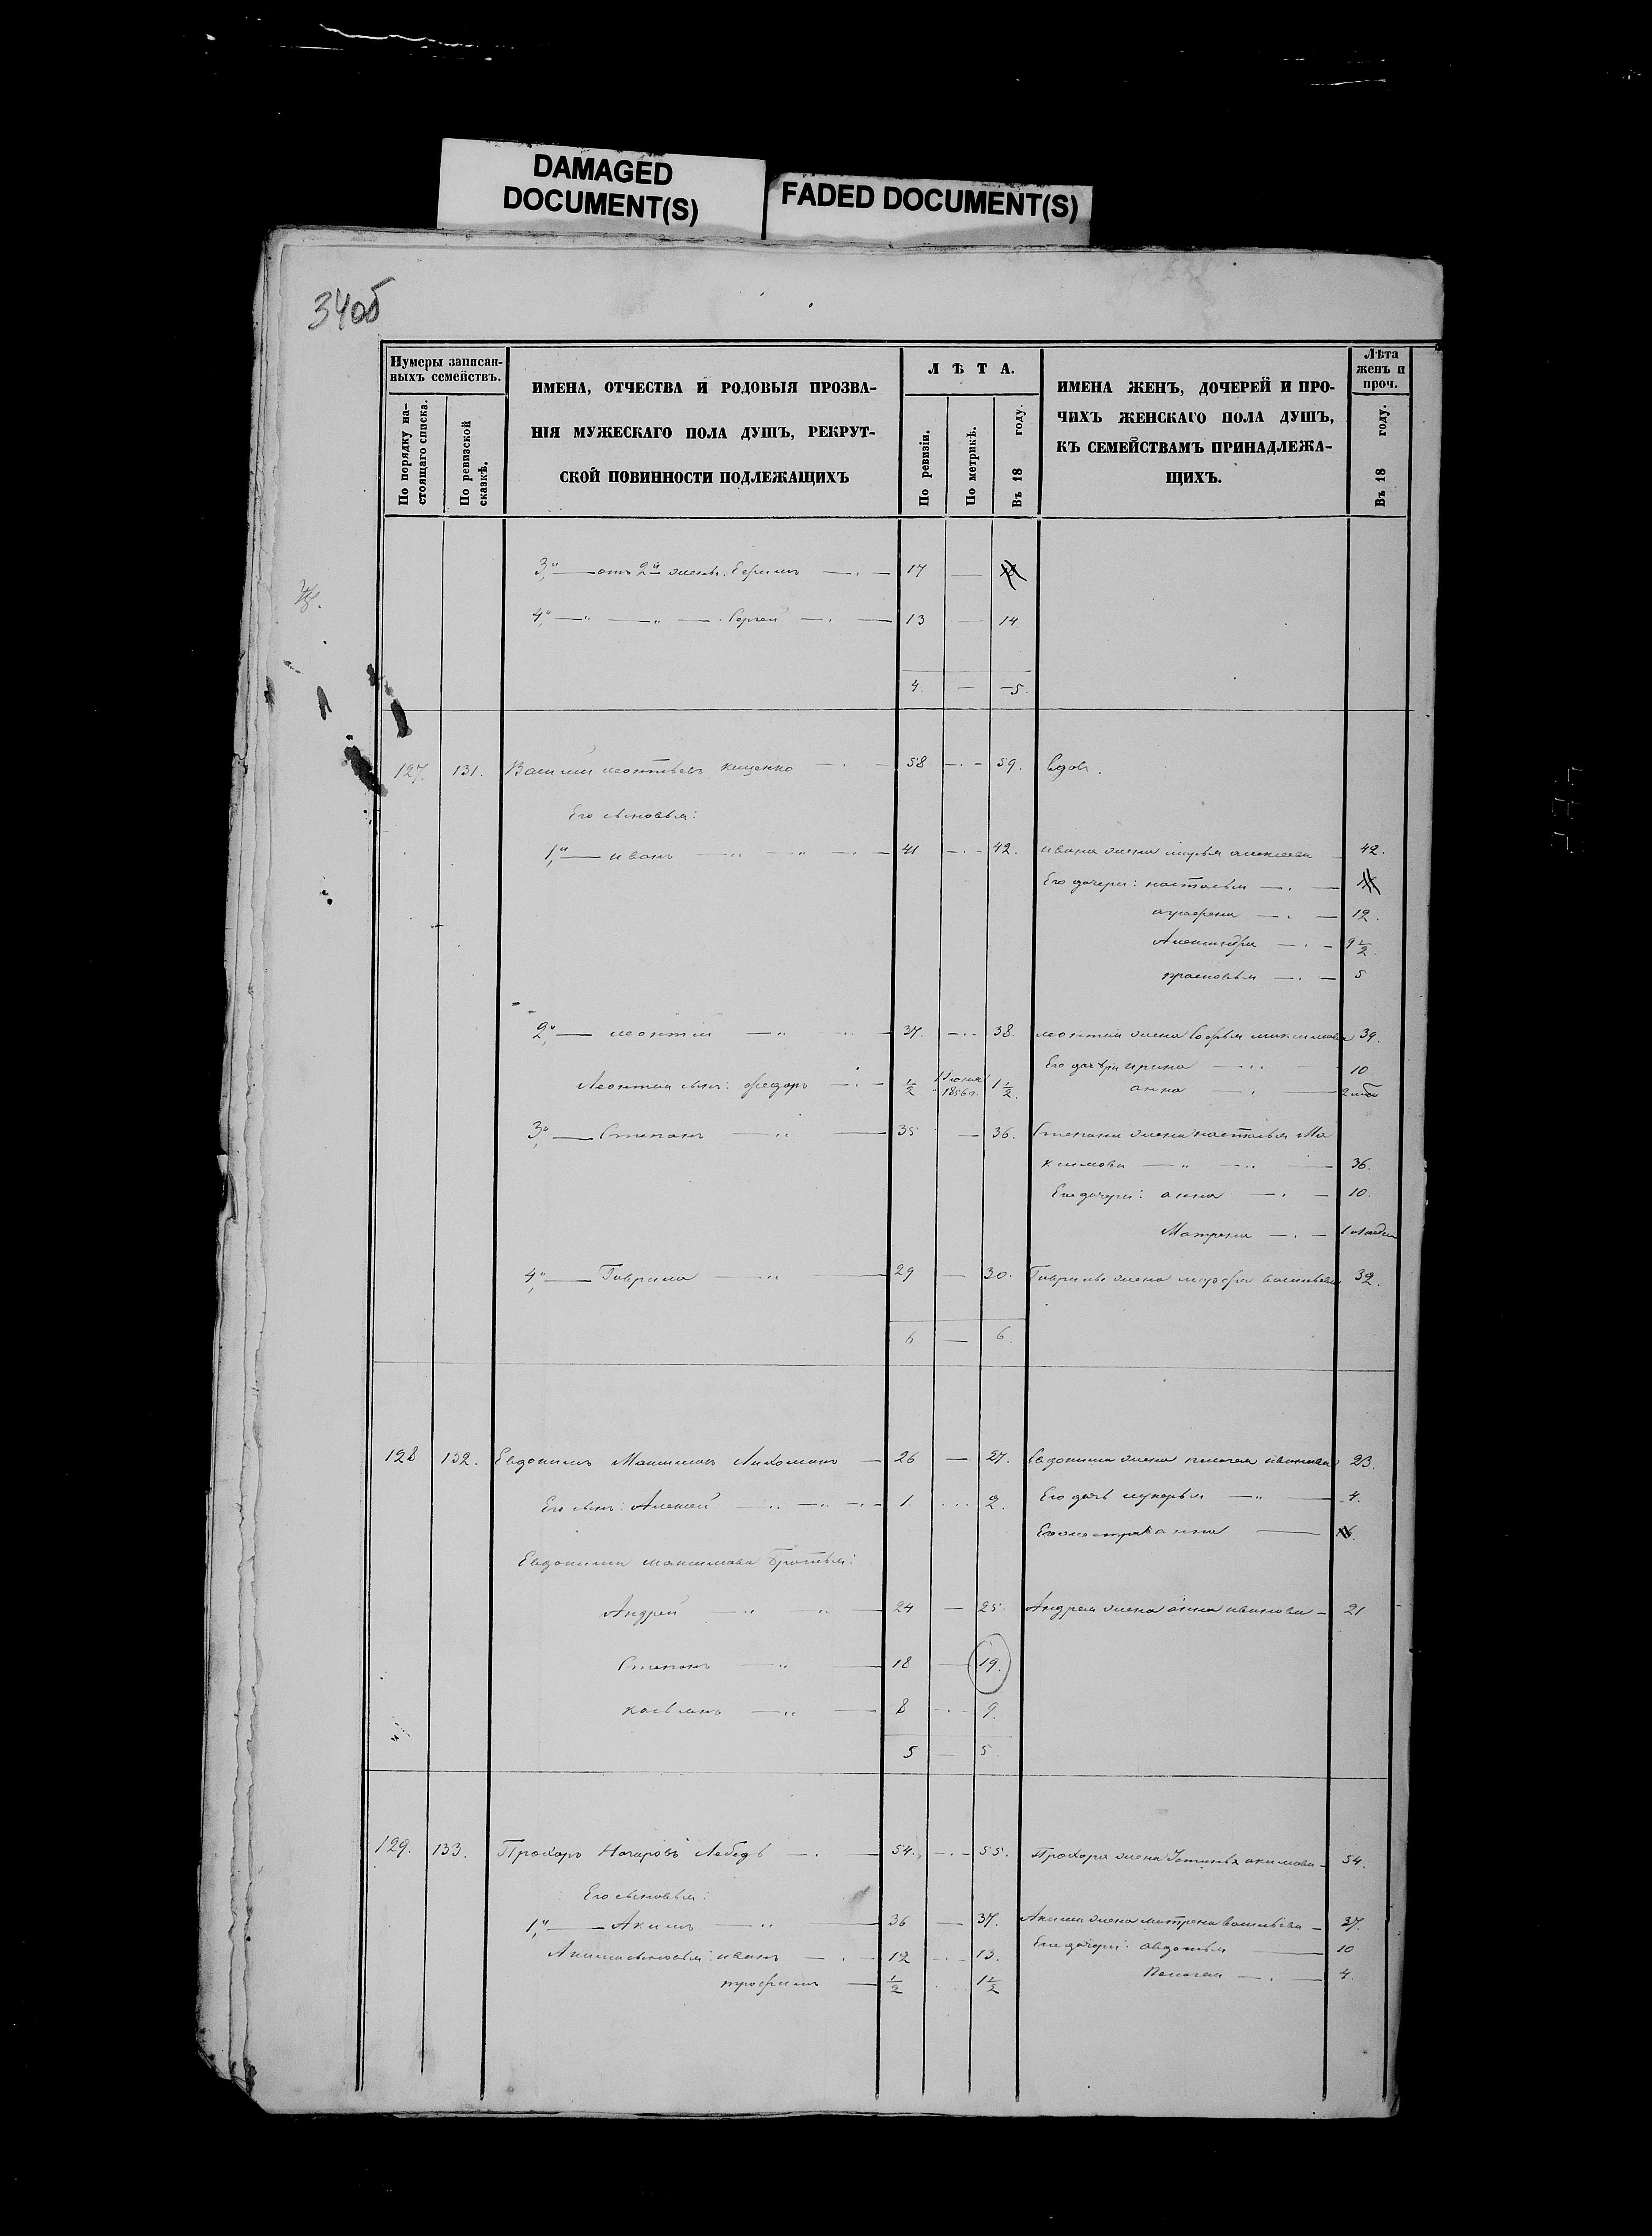 DAMAGED
DOCUMENT(S)
FADED DOCUMENT(S)
34об
Нумеры записан-
ныхъ семействъ.
По порядку на-
стоящаго списка.
По ревизской
сказкѣ.
ИМЕНА, ОТЧЕСТВА И РОДОВЫЯ ПРОЗВА-
НІЯ МУЖЕСКАГО ПОЛА ДУШЪ, РЕКРУТ-
СКОЙ ПОВИННОСТИ ПОДЛЕЖАЩИХЪ
ЛѢТА.
По ревизіи.
По метрикѣ.
Въ 18 году.
ИМЕНА ЖЕНЪ, ДОЧЕРЕЙ И ПРО-
ЧИХЪ ЖЕНСКАГО ПОЛА ДУШЪ,
КЪ СЕМЕЙСТВАМЪ ПРИНАДЛЕЖА-
ЩИХЪ.
Лѣта
женъ и
проч.
Въ 18 году.
3,й — отъ 2й жены Ефимъ — 17 —
4,й — " — " — Сергей — 13 — 14
4. — 5.
127. 131. Василій леонтьевъ кищенко — 58 — 59. вдовъ.
Его сыновья:
1,й — иванъ — 41 — 42. ивана жена марья алексеева 42.
Его дочери: настасья —
аграфена — 12.
Александра — 9 1/2.
прасковья — 5
2,й — леонтій — 37. — 38. леонтія жена Софья максимова 39.
Его дочери ирина — 10
Леонтія сынъ: федоръ — 1/2 1 Іюня 1856г. 1 1/2. анна — 2
3,й — Степанъ — 35 — 36. Степана жена настасья Ма
ксимова — 36.
Его дочери: анна — 10.
Матрена — 1
4,й — Гаврила — 29 — 30. Гаврилы жена марфа васильева 32.
6 — 6.
128 132. Евдокимъ Максимовъ Лихоманъ — 26 — 27. Евдокима жена пелагея иванова 23.
Его сынъ: Алексей — 1. 2. Его дочь лукерья — 4.
Его сестра анна —
Евдокима максимова братья:
Андрей — 24 — 25. Андрея жена анна иванова — 21
Степанъ — 18 — 19.
касьянъ — 8 — 9.
5 — 5.
129. 133. Прохоръ Назаровъ Лебедь — 54. — 55. Прохора жена Устинья акимова — 54.
Его сыновья:
1,й — Акимъ — 36 — 37. Акима жена матрена васильева — 37.
Акима сыновья: иванъ — 12 — 13. Его дочери: авдотья — 10
трофимъ — 1/2 1 1/2 Пелагея — 4.